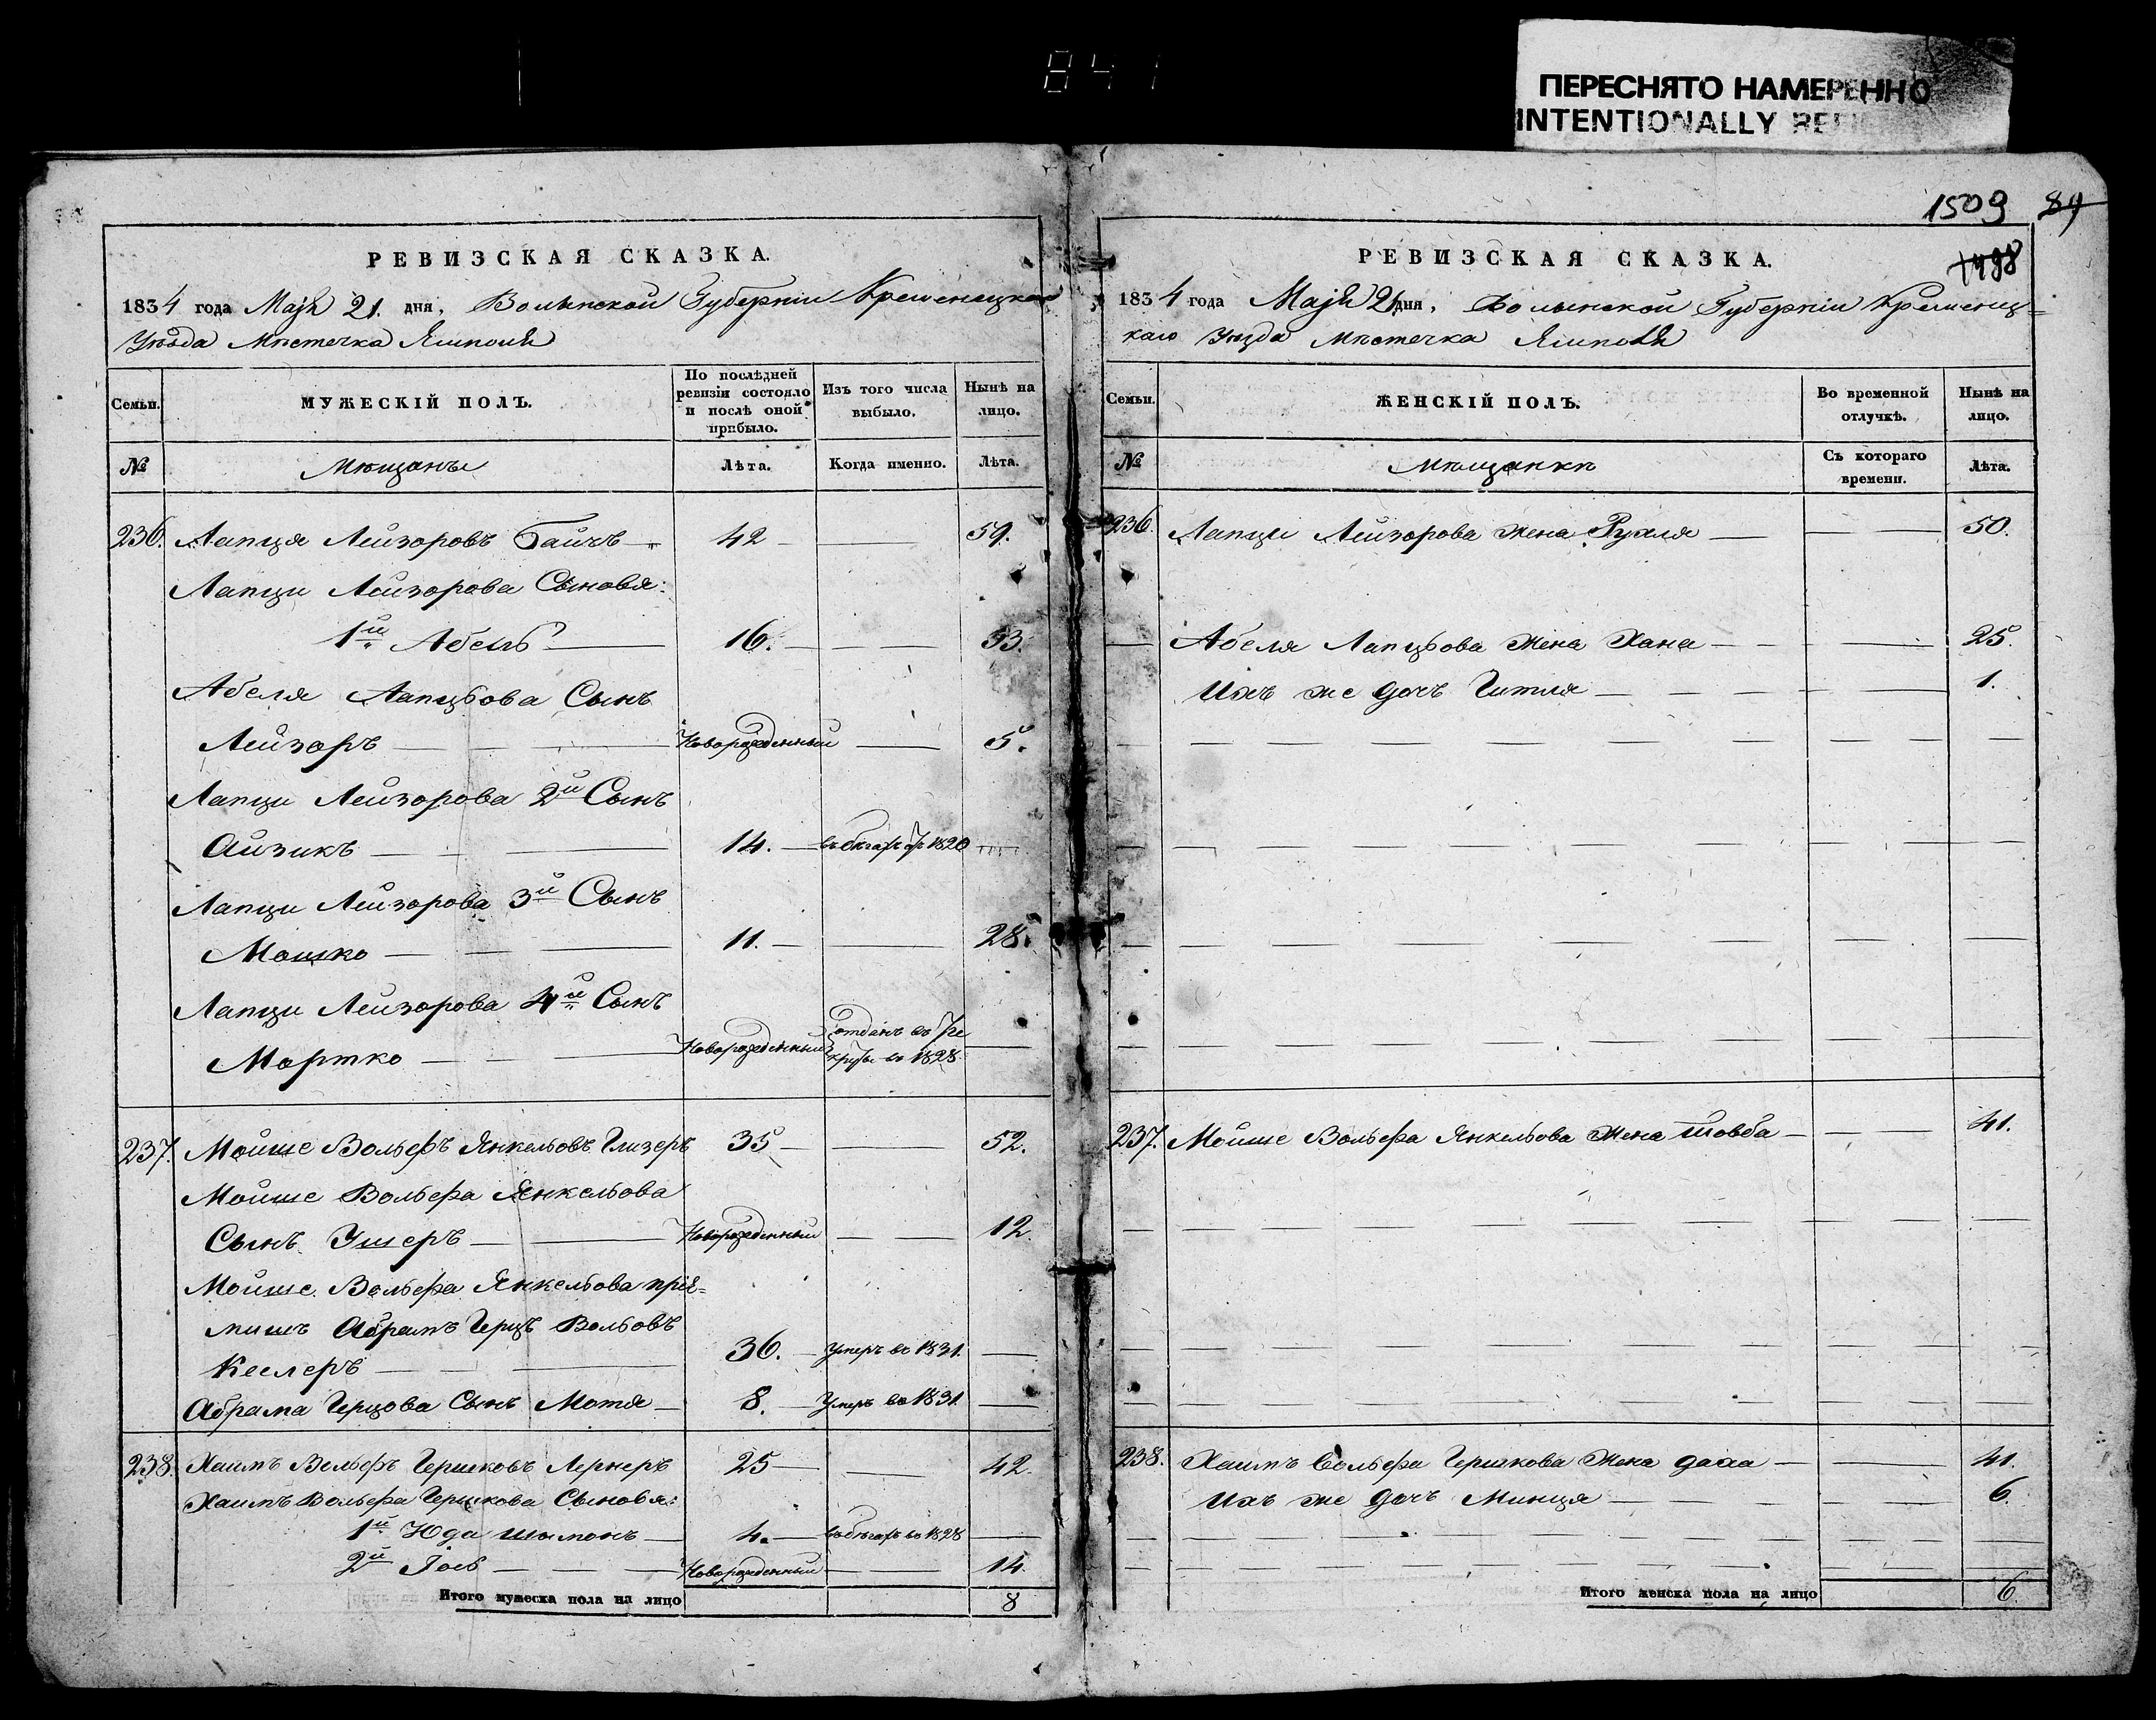 841
ПЕРЕСНЯТО НАМЕРЕННО
INTENTIONALLY
1509 89
1498
РЕВИЗСКАЯ СКАЗКА.
1834 года Маія 21. дня, Волынской Губерніи Кременецкаго
Уѣзда Мѣстечка Ямполя
Семьи.
МУЖЕСКІЙ ПОЛЪ.
По послѣдней ревизіи состояло и послѣ оной прибыло.
Изъ того числа выбыло.
Нынѣ на лицо.
№ Мѣщанъ Лѣта. Когда именно. Лѣта.
236. Лапця Лейзоровъ Байчъ 42 — 59.
Лапци Лейзорова Сыновя:
1й Абель 16. — 33.
Абеля Лапцьова Сынъ
Лейзоръ — Новорожденный — 5.
Лапци Лейзорова 2й Сынъ
Айзикъ — 14. — въ бѣгахъ 1820 —
Лапци Лейзорова 3й Сынъ
Мошко — 11. — 28.
Лапци Лейзорова 4й Сынъ
Мортко — Новорожденный отданъ въ Ре
круты въ 1828 —
237. Мойше Вольфъ Янкельовъ Глизеръ 35 — 52.
Мойше Вольфа Янкельова
Сынъ Ушеръ — Новорожденный — 12.
Мойше Вольфа Янкельова прія=
мишъ Абрамъ Герцъ Вольовъ
Кеслеръ — 36. — Умеръ въ 1831. —
Абрама Герцова Сынъ Мотя — 8. — Умеръ въ 1831. —
238. Хаимъ Вольфъ Гершковъ Лернеръ 25 — 42.
Хаимъ Вольфа Гершкова Сыновя:
1й Юда Шымонъ — 4. — въ бѣгахъ въ 1828 —
2й Іось — Новорожденный — 14.
Итого мужеска пола на лицо 8
РЕВИЗСКАЯ СКАЗКА.
1834 года Маія 21 дня, Волынской Губерніи Кременец=
каго Уѣзда Мѣстечка Ямполя
Семьи.
ЖЕНСКІЙ ПОЛЪ.
Во временной отлучкѣ.
Нынѣ на лицо.
№ Мѣщанки Съ котораго времени. Лѣта.
236. Лапци Лейзорова Жена Рухля — 50.
— Абеля Лапцьова Жена Хана — 25.
Ихъ же дочъ Гитля — 1.
237. Мойше Вольфа Янкельова Жена Шовба — 41.
238. Хаимъ Вольфа Гершкова Жена Даха — 41.
Ихъ же дочъ Минця — 6.
Итого женска пола на лицо 6.